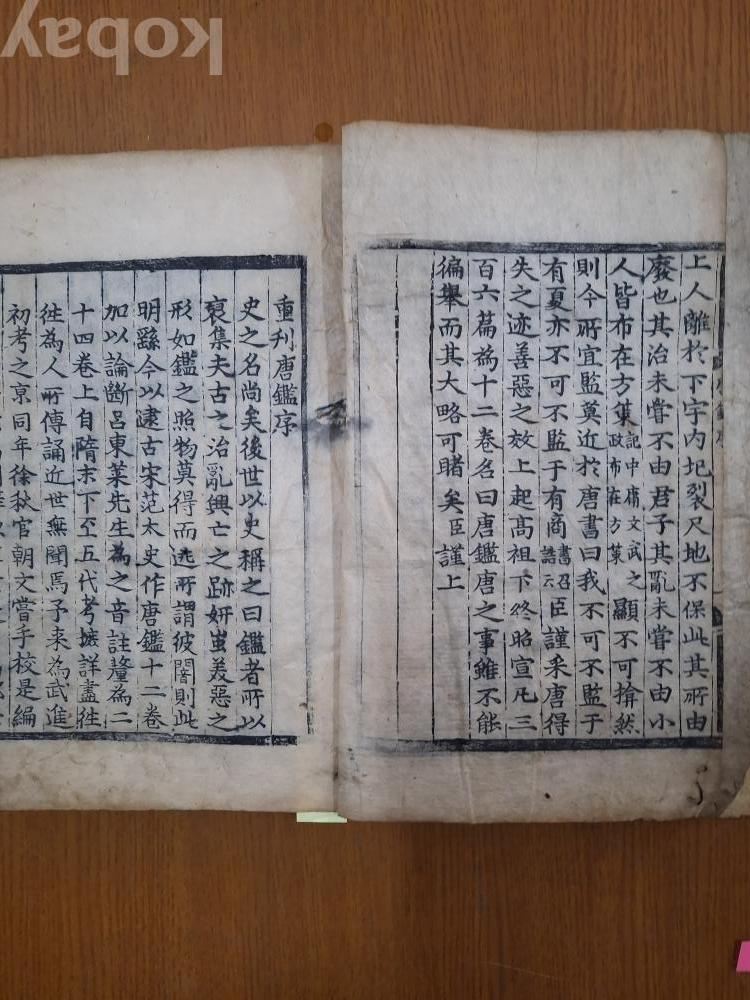 上人離於下宇內圮裂尺地不保此其所由
廢也其治未嘗不由君子其亂未嘗不由小
人皆布在方策記中庸文武之政布在方策顯不可揜然
則今所宜監莫近於唐書曰我不可不監于
有夏亦不可不監于有商書召誥云臣謹采唐得
失之迹善惡之效上起高祖下終昭宣凡三
百六篇為十二卷名曰唐鑑唐之事雖不能
徧舉而其大略可睹矣臣謹上
重刋唐鑑序
史之名尚矣後世以史稱之曰鑑者所以
裒集夫古之治亂興亡之跡妍蚩美惡之
形如鑑之照物莫得而迯所謂彼闇則此
明繇今以逮古宋范太史作唐鑑十二卷
加以論斷呂東萊先生為之音註釐為二
十四卷上自隋末下至五代考據詳盡徃
徃為人所傳誦近世無聞焉予来為武進
初考之京同年徐秋官朝文嘗手校是編
kobay